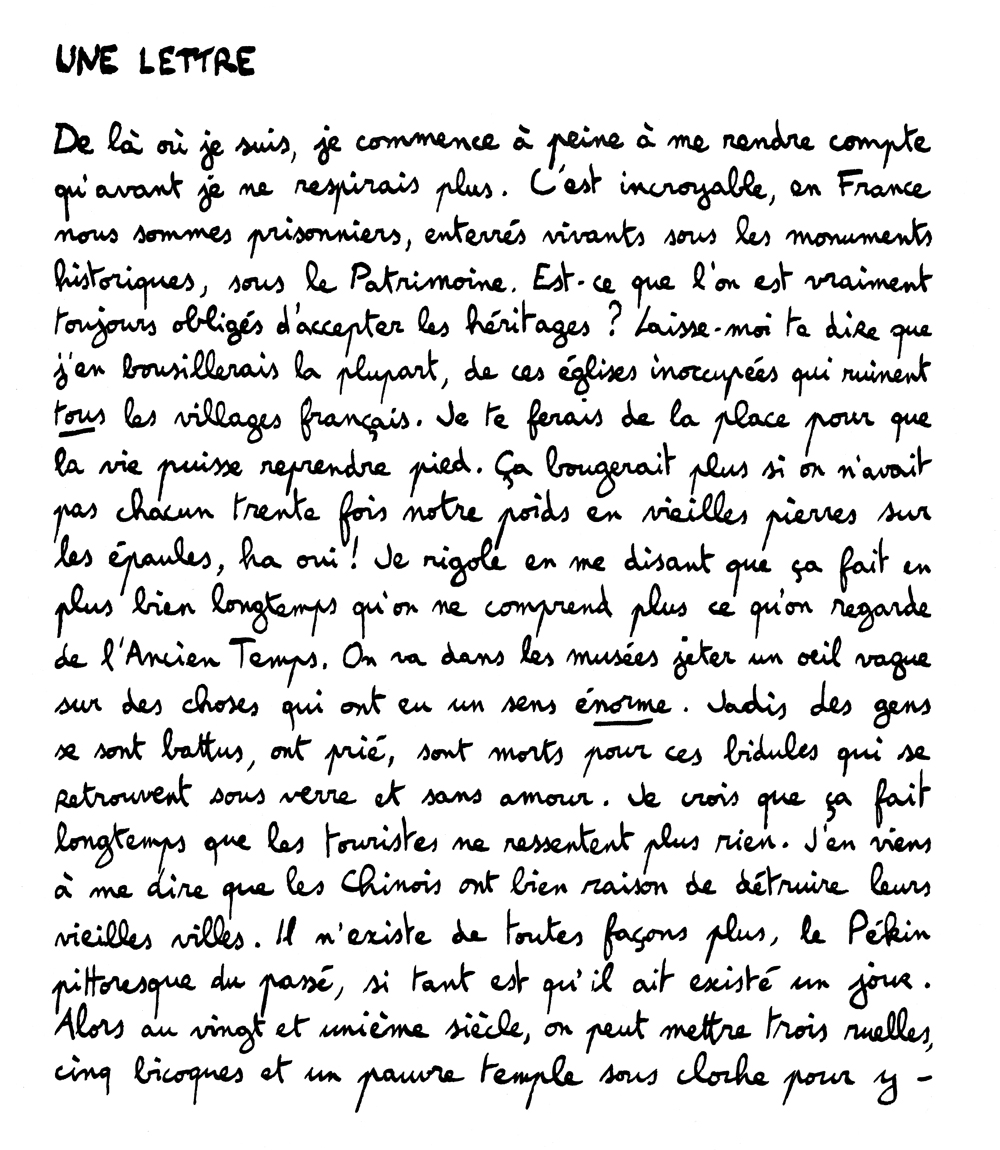 UNE LETTRE
De là où je suis, je commence à peine à me rendre compte
qu'avant je ne respirais plus. C'est incroyable, en France
nous sommes prisonniers, enterrés vivants sous les monuments
historiques, sous le Patrimoine. Est-ce que l'on est vraiment
toujours obligés d'accepter les héritages ? Laisse-moi te dire que
j'en bousillerais la plupart, de ces églises inoccupées qui ruinent
tous les villages français. Je te ferais de la place pour que
la vie puisse reprendre pied. Ça bougerait plus si on n'avait
pas chacun trente fois notre poids en vieilles pierres sur
les épaules, ha oui ! Je rigole en me disant que ça fait en
plus bien longtemps qu'on ne comprend plus ce qu'on regarde
de l'Ancien Temps. On va dans les musées jeter un oeil vague
sur des choses qui ont eu un sens énorme. Jadis des gens
se sont battus, ont prié, sont morts pour ces bidules qui se
retrouvent sous verre et sans amour. Je crois que ça fait
longtemps que les touristes ne ressentent plus rien. J'en viens
à me dire que les Chinois ont bien raison de détruire leurs
vieilles villes. Il n'existe de toutes façons plus, le Pékin
pittoresque du passé, si tant est qu'il ait existé un jour.
Alors au vingt et unième siècle, on peut mettre trois ruelles,
cinq bicoques et un pauvre temple sous cloche pour y -